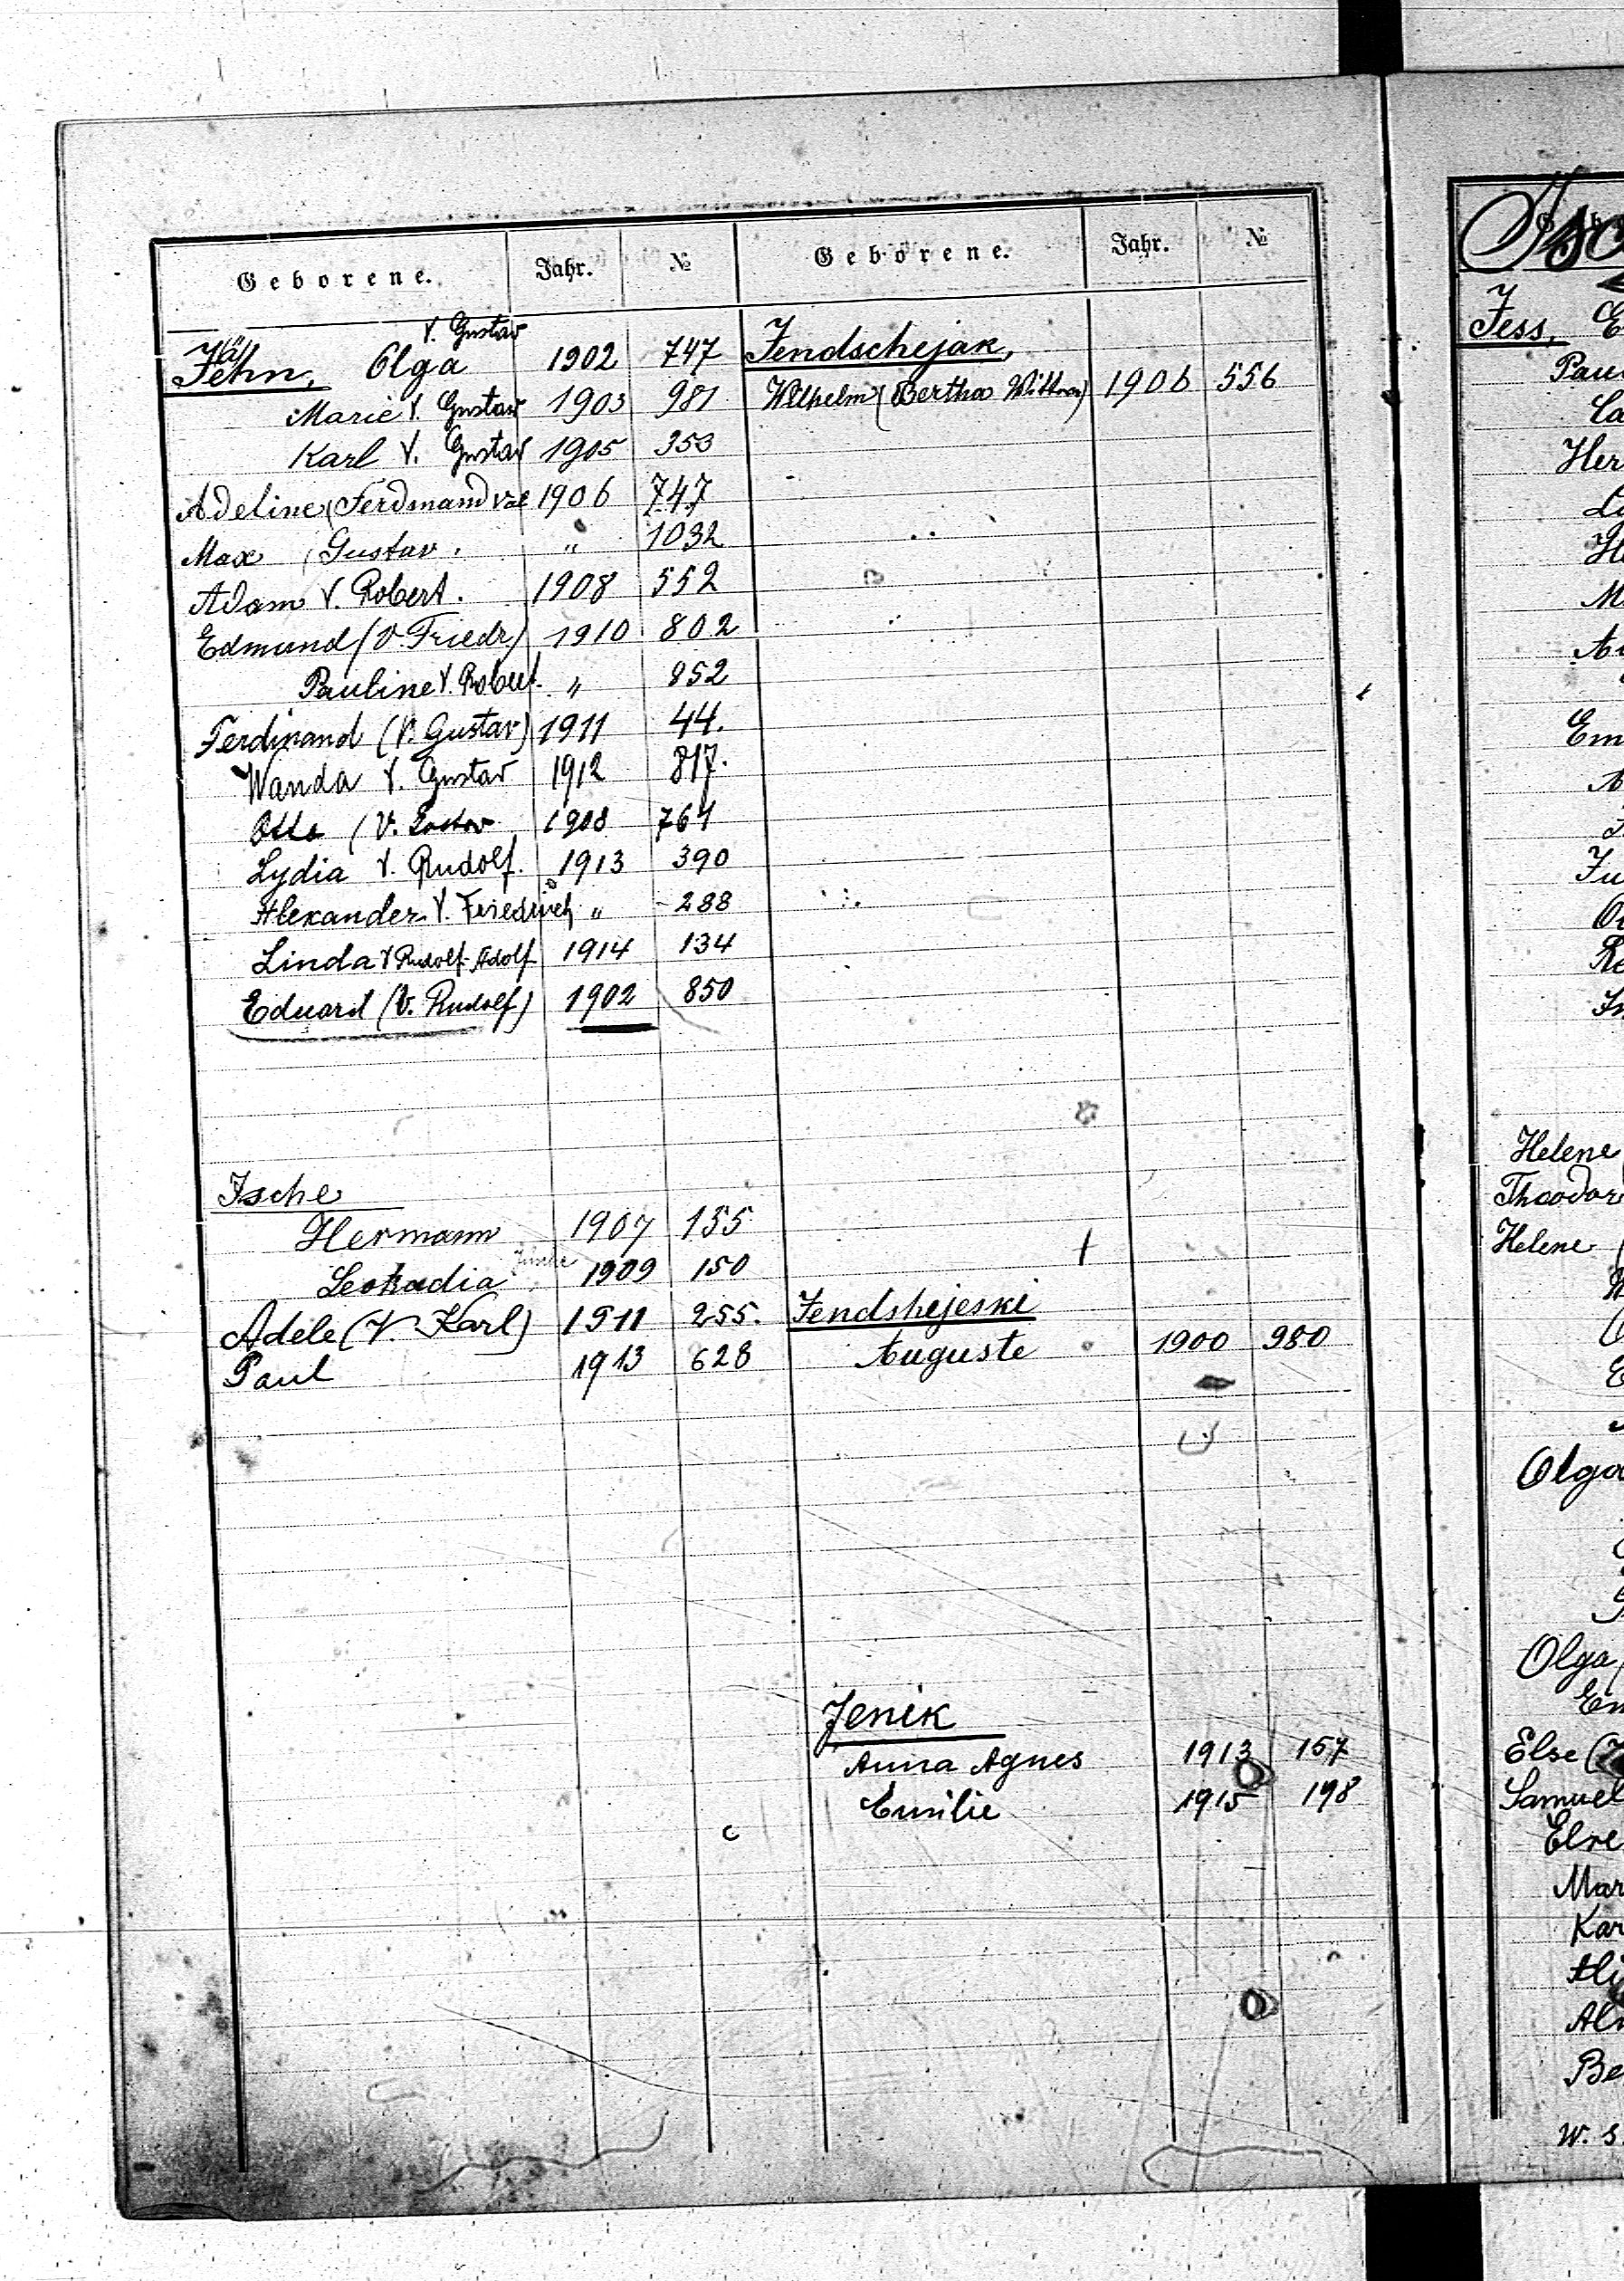 Geborene. Jahr. №
V. Gustav
Jehn, Olga 1902 747
Marie V. Gustav 1903 981
Karl V. Gustav 1905 353
Adeline (Ferdinand 1906 747
Max (Gustav. " 1032
Adam V. Robert. 1908 552
Edmund (V. Friedr) 1910 802
Pauline V. Robert. " 852
Ferdinand (V. Gustav) 1911 44.
Wanda V. Gustav 1912 817.
Otto (V. 1908 764
Lydia V. Rudolf. 1913 390
Alexander V. Friedrich " 288
Linda V Rudolf-Adolf 1914 134
Eduard (V. Rudolf) 1902 850
Jsche
Hermann 1907 155
Leokadia 1909 150
Adele (V. Karl) 1911 255.
Paul 1913 628
Geborene. Jahr. №
Jendschejak,
Wilhelm (Bertha 1906 556
Jendshejeski
Auguste 1900 980
Jenik
Anna Agnes 1913 157
Emilie 1915 198
Jess, E
Pau
Her
Em
Ju
Helene
Theodor
Helene (
Olga
Olga
Em
Else (
Samuel
Else
Mar
Kar
Be
W. S